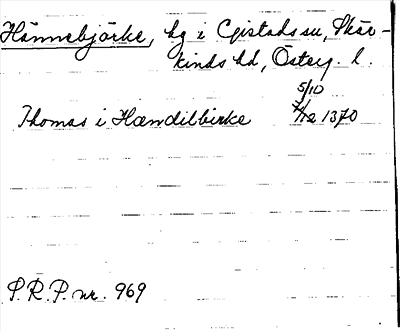 Hännebjörke, hg i Gistads sn, Skär-
kinds hd, Österg. l.
5/10
Thomas i Hæmdilbirke 7/12 1370
S.R.P. nr. 969